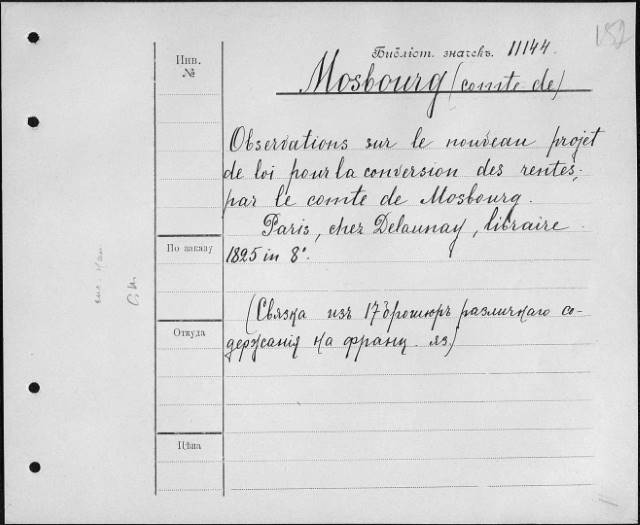 152
Библіот. значекъ. 11144.
Инв.
№
Mosbourg (comte de)
Observations sur le nouveau projet
de loi pour la conversion des rentes,
par le comte de Mosbourg.
Paris, chez Delaunay, libraire
По заказу
1825 in 8°.
(Связка изъ 17 брошюръ различнаго со-
Откуда
держанія на франц. яз.)
Цѣна